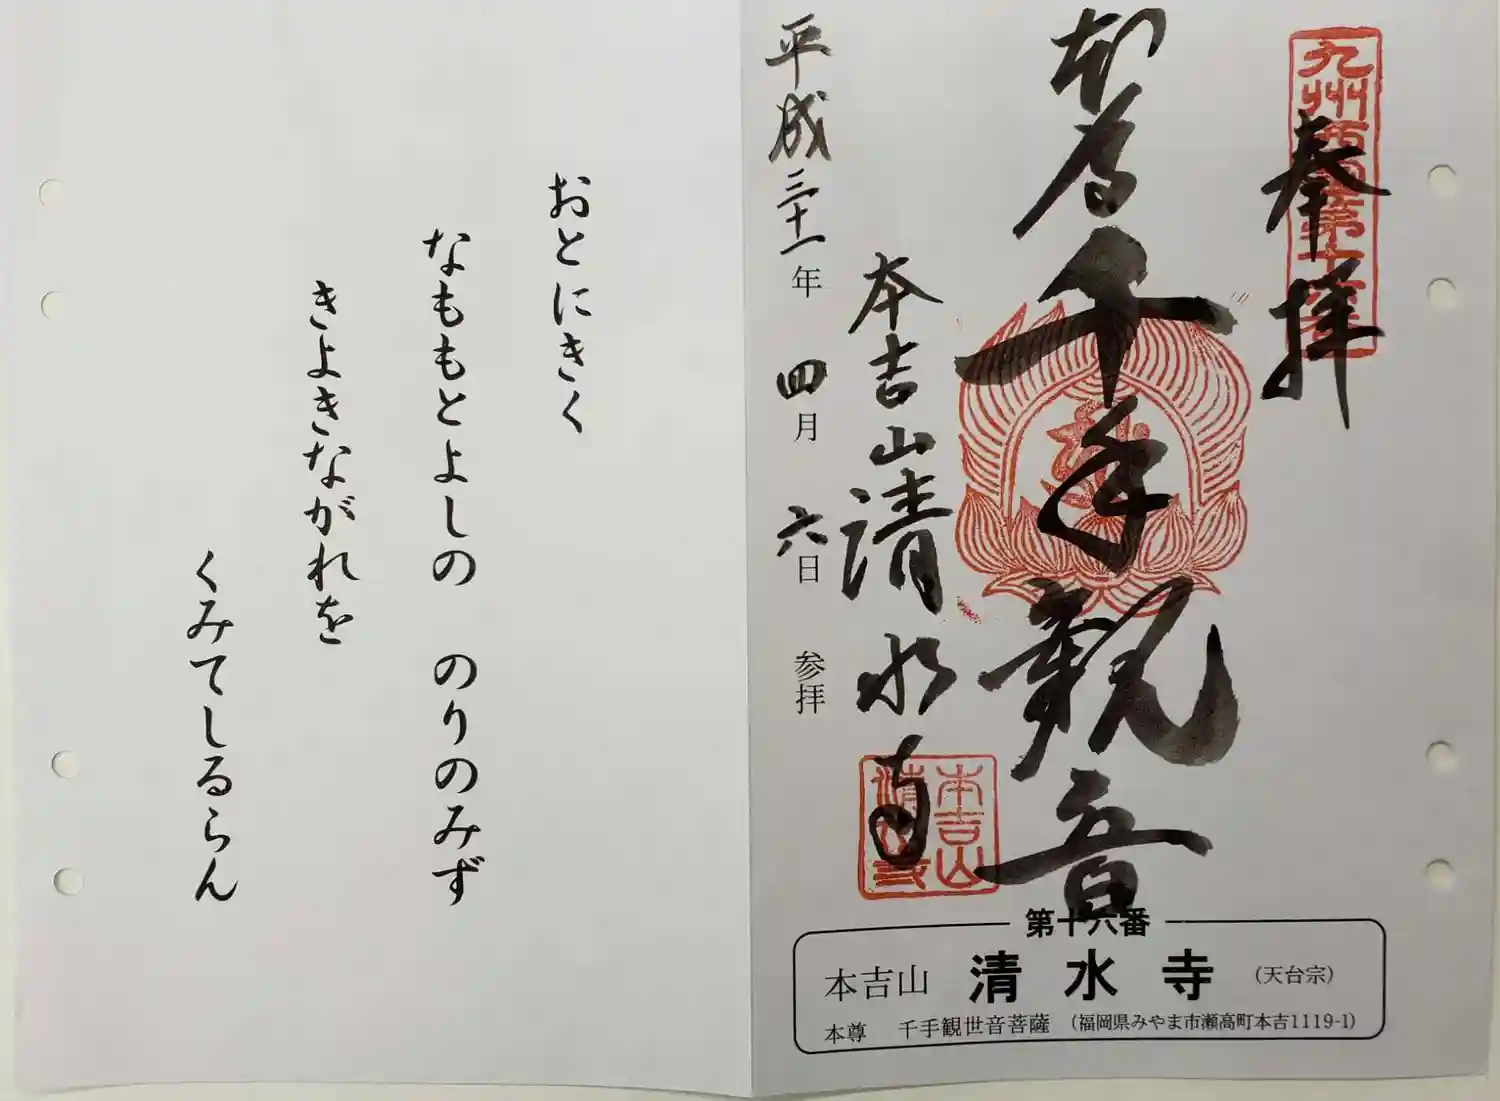 九州西国第十六番
奉拝
本尊
千手観音
本吉山清水寺
本吉山
清水寺
平成三十一年 四月 六日 参拝
第十六番
本吉山 清水寺 (天台宗)
本尊 千手観世音菩薩 (福岡県みやま市瀬高町本吉1119-1)
おとにきく
なももとよしの のりのみず
きよきながれを
くみてしるらん